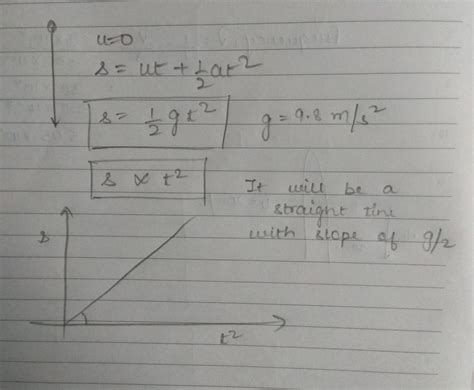 u=0
s = ut + 1/2 at²
s = 1/2 gt²
g = 9.8 m/s²
s ∝ t²
It will be a
straight line
with slope of g/2
s
t²